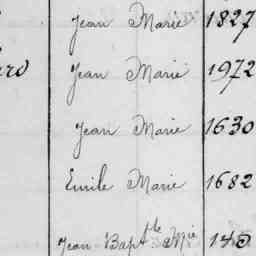 Jean Marie 1827
Jean Marie 1972
Jean Marie 1630
Emile Marie 1682
Jean Bapt^te Mie